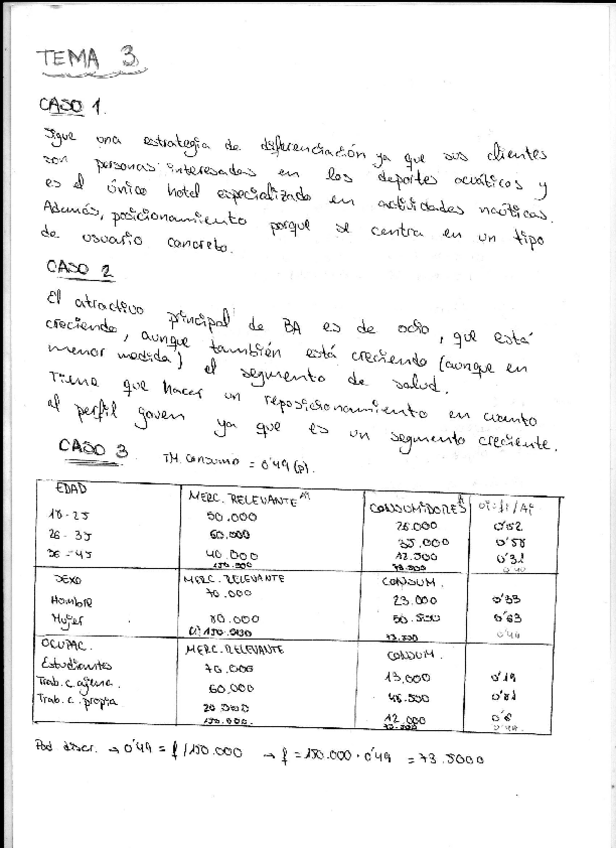 TEMA 3
CASO 1.
Sigue una estrategia de diferenciación ya que sus clientes
son personas interesadas en los deportes acuáticos y
es el único hotel especializado en actividades naúticas.
Además, posicionamiento porque se centra en un tipo
de usuario concreto.
CASO 2
El atractivo principal de BA es de ocio, que está
creciendo, aunque también está creciendo (aunque en
menor medida) el segmento de salud.
Tiene que hacer un reposicionamiento en cuanto
al perfil joven ya que es un segmento creciente.
CASO 3 TM. CONSUMO = 0'49 (p).
EDAD MERC. RELEVANTE CONSUMIDORES
18-25 50.000 26.000 0'52
26-35 60.000 35.000 0'58
36-45 40.000 12.500 0'31
150.000 73.500 0'49
SEXO MERC. RELEVANTE CONSUM.
Hombre 70.000 23.000 0'33
Mujer 80.000 50.500 0'63
150.000 73.500 0'49
OCUPAC. MERC. RELEVANTE CONSUM.
Estudiantes 70.000 13.000 0'19
Trab. c. ajena. 60.000 48.500 0'81
Trab. c. propia 20.000 12.000 0'6
150.000 73.500 0'49
Pod discr. → 0'49 = f/150.000 → f = 150.000 · 0'49 = 73.5000